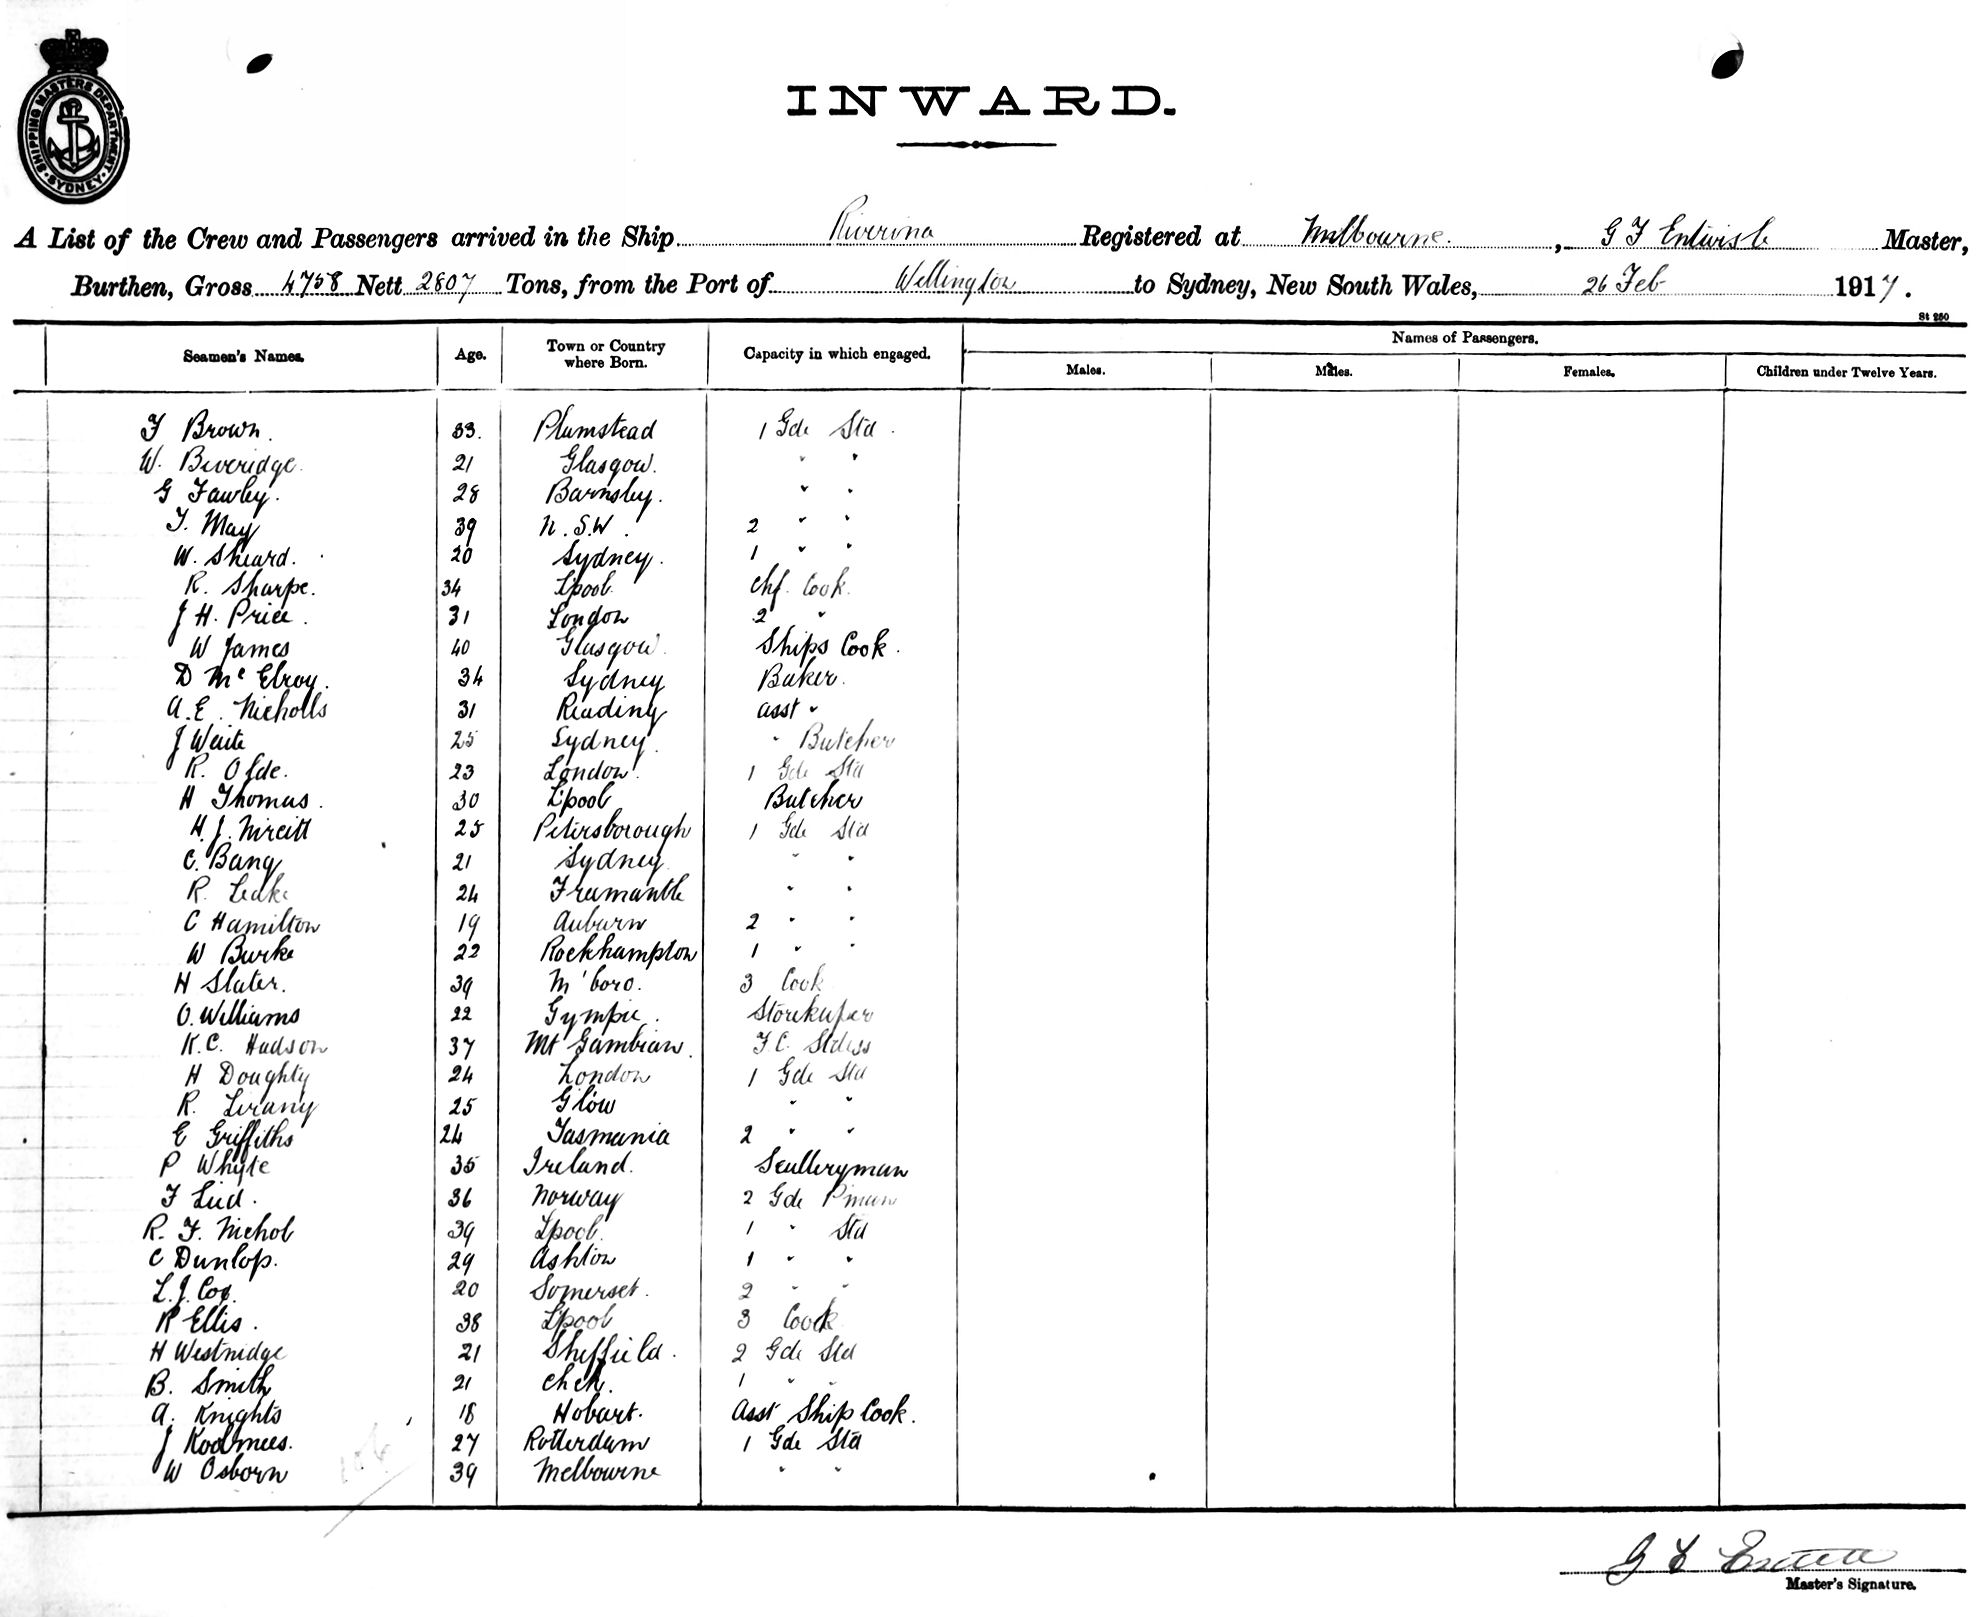 SHIPPING MASTERS DEPARTMENT · SYDNEY ·
INWARD.
A List of the Crew and Passengers arrived in the Ship Riverina Registered at Melbourne. , G F Entwisle Master,
Burthen, Gross 4758 Nett 2807 Tons, from the Port of Wellington to Sydney, New South Wales, 26 Feb 1917.
St 250
Seamen's Names. Age. Town or Country where Born. Capacity in which engaged. Names of Passengers.
Males. Males. Females. Children under Twelve Years.
F Brown. 33. Plumstead 1 Gde Std.
W. Beveridge. 21 Glasgow. " "
G Fawley. 28 Barnsley. " "
T. May 39 N.S.W. 2 " "
W. Sheard. 20 Sydney. 1 " "
R. Sharpe. 34 L'pool. Chf. Cook.
J H. Price. 31 London 2 "
W James 40 Glasgow. Ships Cook.
D McElroy. 34 Sydney Baker.
A.E. Nicholls 31 Reading asst "
J Waite 25 Sydney. " Butcher
R. Olde. 23 London. 1 Gde Std
H Thomas. 30 L'pool Butcher
H. J. 25 Petersborough 1 Gde Std
C. Bang 21 Sydney " "
R. Leake 24 Fremantle " "
C Hamilton 19 Auburn 2 " "
W Burke 22 Rockhampton 1 " "
H Slater. 39 M'boro. 3 Cook
O. Williams 22 Gympie. Storekeeper
K.C. Hudson 37 Mt Gambian. F.C. Stdess
H Doughty 24 London 1 Gde Std
R. 25 Glow " "
E Griffiths 24 Tasmania 2 " "
P Whyte 35 Ireland. Sculleryman
F Lud. 36 Norway 2 Gde P'man
R. F. Nichol 39 L'pool. 1 " Std
C Dunlop. 29 Ashton 1 " "
L.J. Cox. 20 Somerset. 2 " "
R Ellis. 38 L'pool 3 Cook
H Westnidge 21 Sheffield. 2 Gde Std
B. Smith 21 Ch ch. 1 " "
A. Knights 18 Hobart. Asst Ship Cook.
J Koolmees. 27 Rotterdam 1 Gde Std
W Osborn 39 Melbourne " "
Master's Signature.